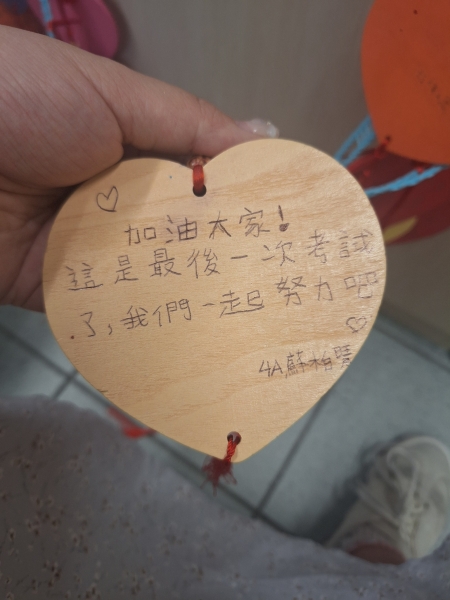 加油大家!
這是最後一次考試
了,我們一起努力吧
4A蘇柏